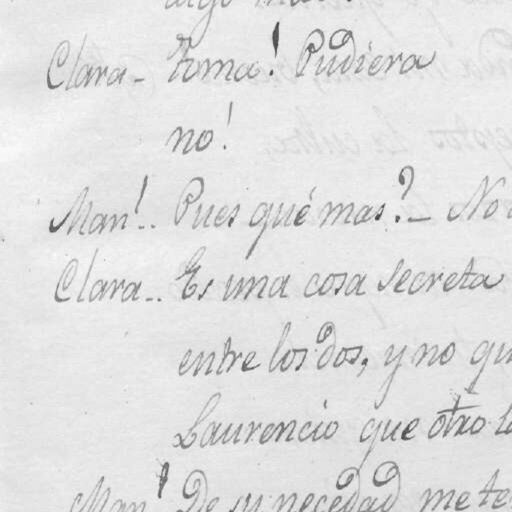 algo mas
Clara- Toma! Pudiera
no!
Man!.. Pues qué mas?- No
Clara.. Es una cosa secreta
entre los dos, y no
Laurencio que otro
Man! De su necedad